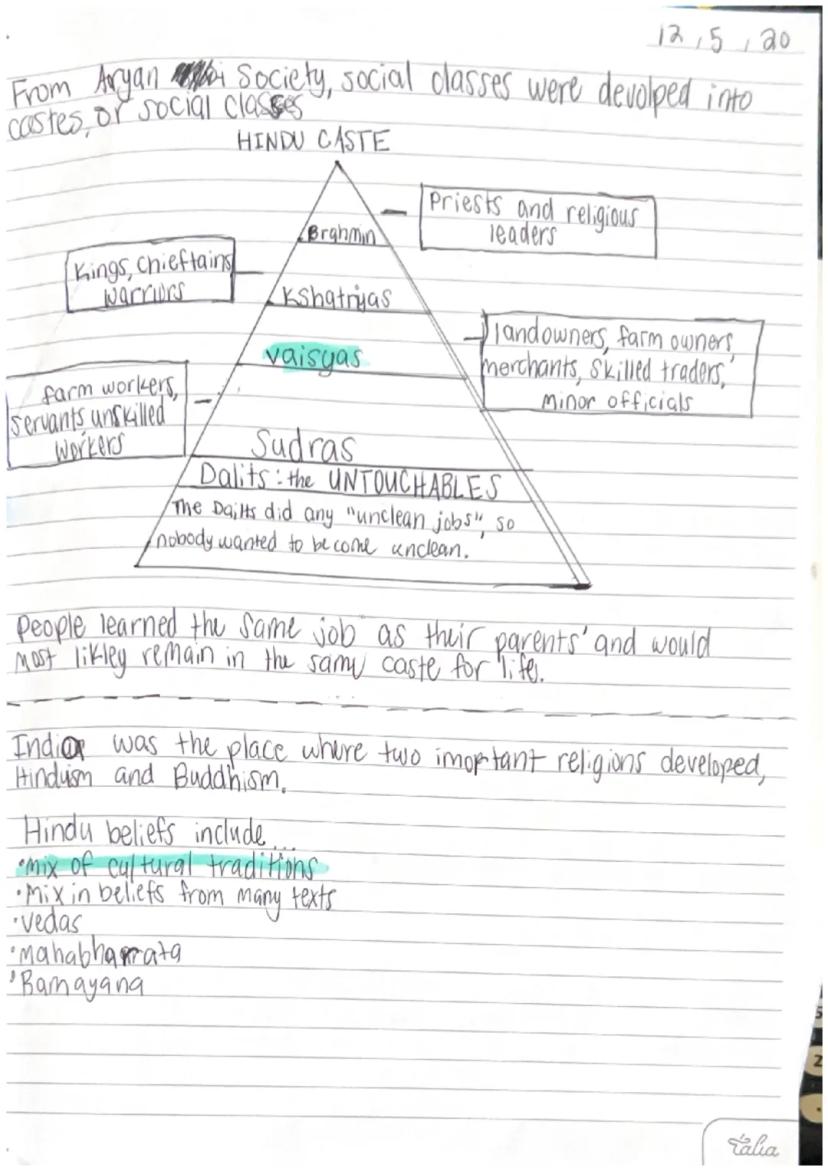 12, 5, 20
From Aryan Society, social classes were devolped into
castes, or social classes
HINDU CASTE
Priests and religious
leaders
Brahmin
Kings, Chieftains
warriors
Kshatriyas
landowners, farm owners,
merchants, skilled traders,
minor officials
vaisyas
farm workers,
servants unskilled
workers
Sudras
Dalits: the UNTOUCHABLES
The Dailts did any "unclean jobs", so
nobody wanted to become unclean.
People learned the same job as their parents' and would
most likley remain in the same caste for life.
India was the place where two imoprtant religions developed,
Hinduism and Buddhism.
Hindu beliefs include...
•mix of cultural traditions
•Mix in beliefs from many texts
•vedas
•mahabharata
•Ramayana
talia